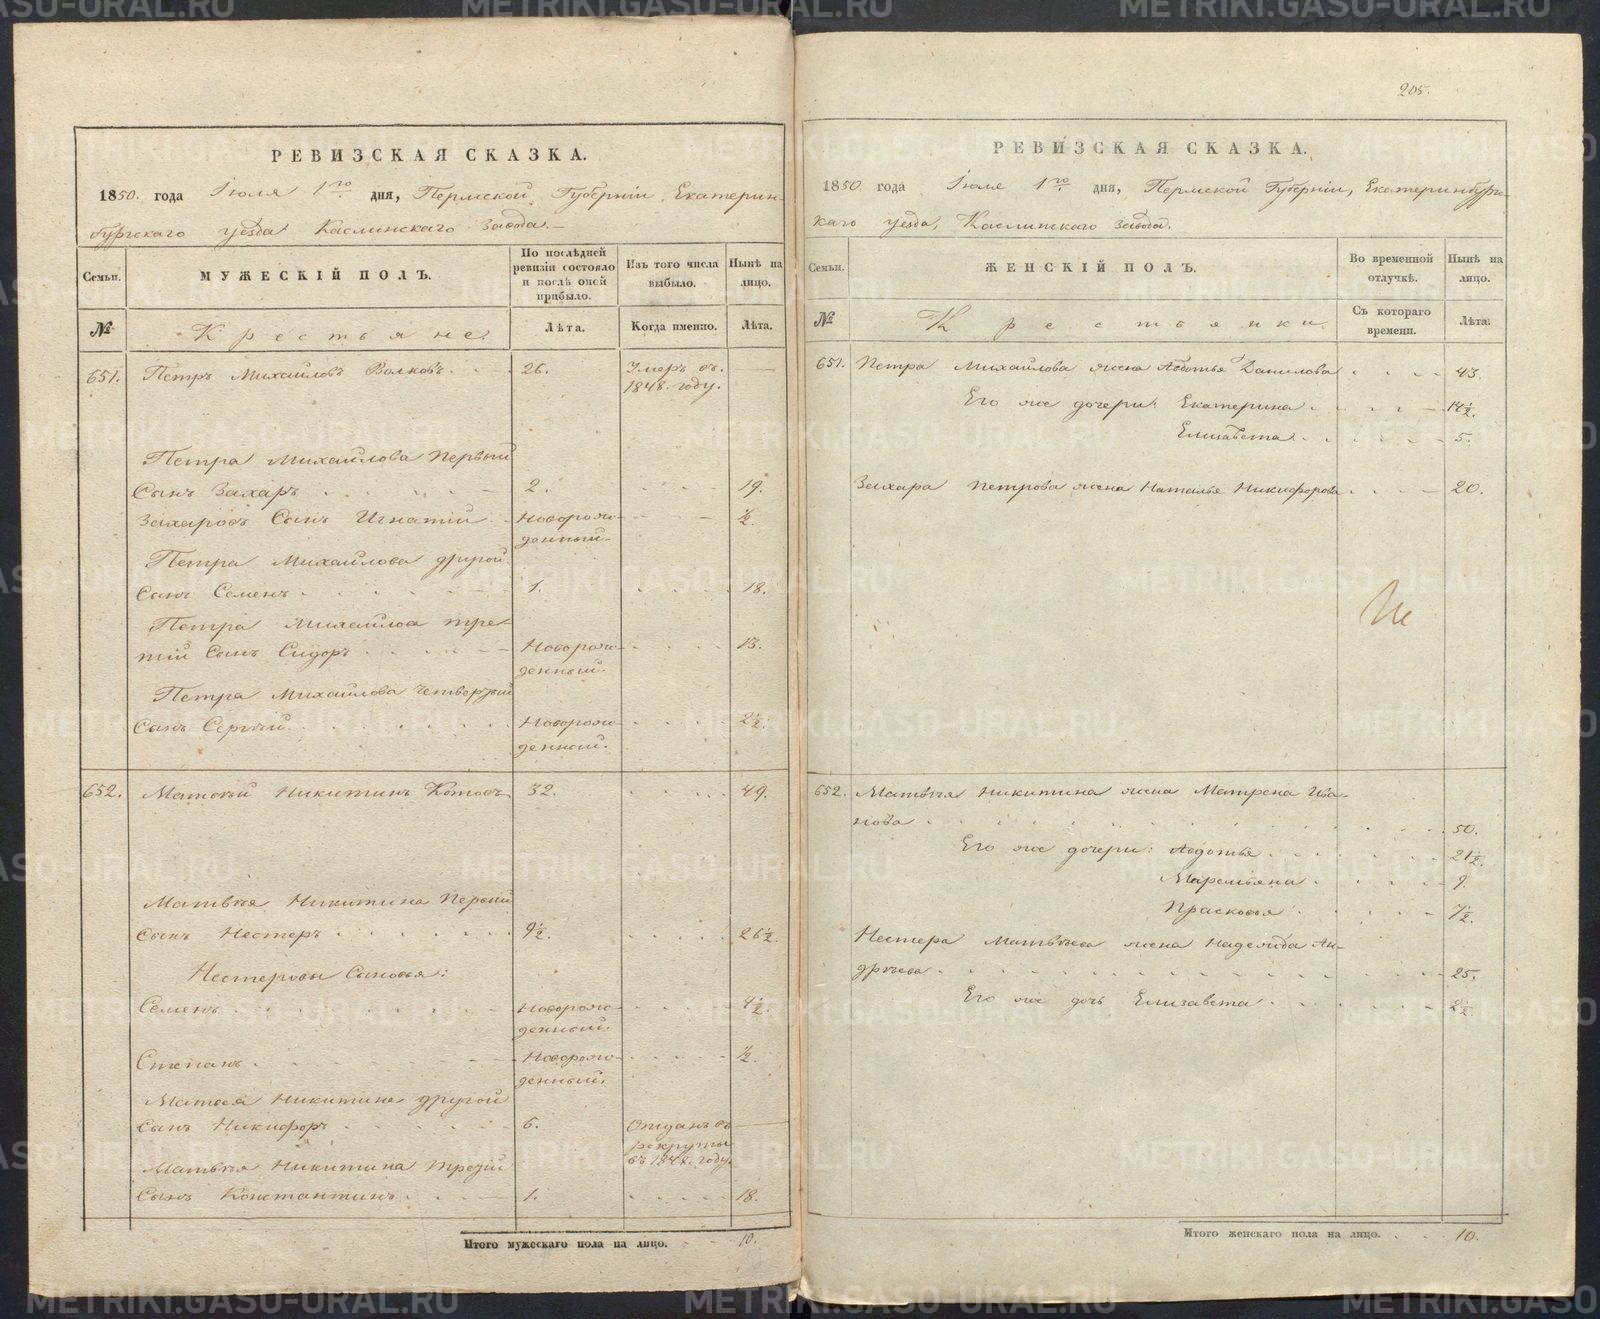 РЕВИЗСКАЯ СКАЗКА.
1850. года Іюля 1го дня, Пермской Губерніи, Екатерин-
бургскаго уезда Каслинскаго Завода.
Семьи.
МУЖЕСКІЙ ПОЛЪ.
По послѣдней ревизіи состояло и послѣ оней прибыло.
Изъ того числа выбыло.
Нынѣ на лицо.
№
Крестьяне
Лѣта.
Когда именно.
Лѣта.
651. Петръ Михайловъ Волковъ. 26. Умеръ въ —
1848. году.
Петра Михайлова Первый
Сынъ Захаръ 2. 19.
Захаровъ Сынъ Игнатій Новорож- ½.
денный.
Петра Михайлова другой
Сынъ Семенъ 1. 18.
Петра Михайлова тре-
тій Сынъ Сидоръ Новорож- 13.
денный.
Петра Михайлова четвертый
Сынъ Сергѣй Новорож- 2½.
денный.
652. Матвѣй Никитинъ Котовъ 32. 49.
Матвѣя Никитина Первый
Сынъ Нестеръ 9½. 26½.
Нестеровы Сыновья:
Семенъ Новорож- 4½.
денный.
Степанъ Новорож- ½.
денный.
Матвея Никитина другой
Сынъ Никифоръ 6. Отданъ въ —
рекруты
въ 1848. году.
Матвѣя Никитина третій
Сынъ Константинъ 1. 18.
Итого мужескаго пола на лицо. 10.
205.
РЕВИЗСКАЯ СКАЗКА.
1850. года Іюля 1го дня, Пермской Губерніи, Екатеринбургс-
каго уезда, Каслинскаго Завода.
Семьи.
ЖЕНСКІЙ ПОЛЪ.
Во временной отлучкѣ.
Нынѣ на лицо.
№
Крестьянки
Съ котораго времени.
Лѣта.
651. Петра Михайлова жена Авдотья Данилова 43.
Его же дочери: Екатерина 14½.
Елизавета 5.
Захара Петрова жена Наталья Никифорова 20.
652. Матвѣя Никитина жена Матрена Ива-
нова 50.
Его же дочери: Авдотья 21½.
Маремьяна 9.
Прасковья 7½.
Нестера Матвѣева жена Надежда Ан-
дрѣева 25.
Его же дочь Елизавета 2½.
Итого женскаго пола на лицо. 10.
METRIKI.GASO-URAL.RU